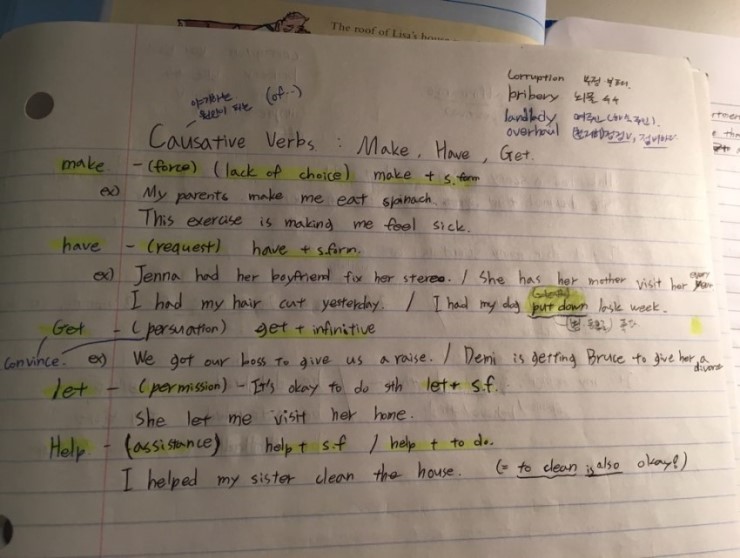 The roof of Lisa's house
Corruption 부정 부패.
bribery 뇌물 수수
landlady 여주인 (하숙주인).
overhaul 점검, 정비하다.
야기하는 원인이 되는 (of..)
Causative Verbs : Make, Have, Get.
make - (force) (lack of choice) make + s.form
ex) My parents make me eat spinach.
This exercise is making me feel sick.
have - (request) have + s.form.
ex) Jenna had her boyfriend fix her stereo. / She has her mother visit her every year
I had my hair cut yesterday. / I had my dog put down lask week.
Get - (persuation) get + infinitive
Convince. ex) We got our boss to give us a raise. / Demi is getting Bruce to give her a divorce
let - (permission) - It's okay to do sth let + s.f.
She let me visit her home.
Help - (assistance) help + s.f / help + to do.
I helped my sister clean the house. (= to clean is also okay!)